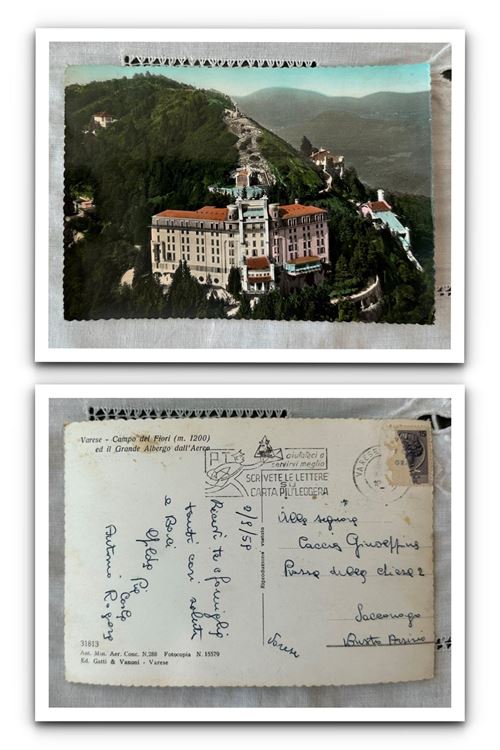 Varese - Campo dei Fiori (m. 1200)
ed il Grande Albergo dall'Aereo
P.T.
aiutateci a
servirvi meglio
SCRIVETE LE LETTERE
SU
CARTA PIU' LEGGERA
VARESE
9/8/58
Ricevi te e famiglia
tanti cari saluti
e Baci
Pia
Carlo
Antonio
Riproduzione vietata
Alla signora
Caccia Giuseppina
Piazza della Chiesa 2
Sacconago
Busto Arsizio
Varese
31813
Aut. Min. Aer. Conc. N.288 Fotocopia N. 15579
Ed. Gatti & Vanoni - Varese